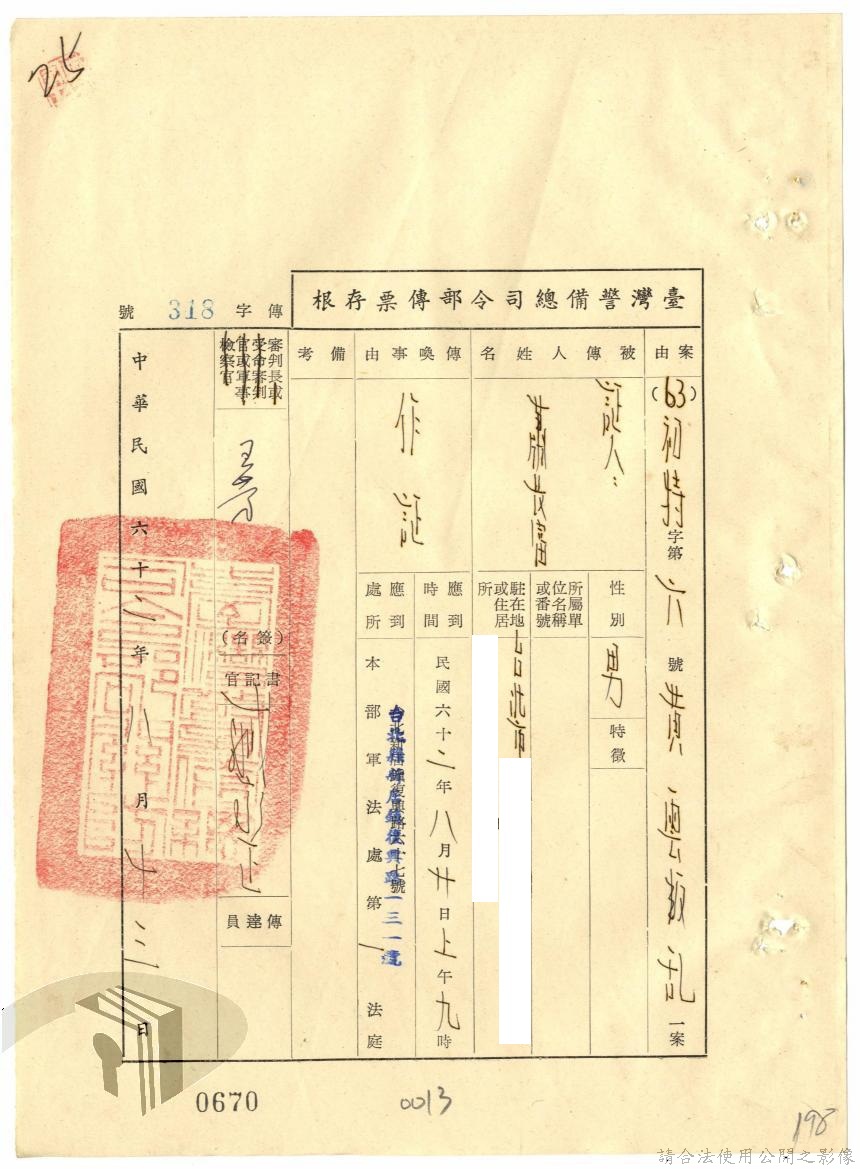 臺灣警備總司令部傳票存根
傳字 318 號
案由
(63)初特字第六號黃 叛乱一案
被傳人姓名
証人：
蕭 富
性別
男
特徵
所屬單位名稱或番號
駐在地或住居所
台北市
傳喚事由
作証
應到時間
民國六十二年八月廿日上午九時
應到處所
本部軍法處第一法庭
台北縣 店鎮復興路一三一號
備考
審判長或受命審判官或軍事檢察官
(簽名)
書記官
傳達員
中華民國六十二年八月十三日
0670
0013
198
請合法使用公開之影像